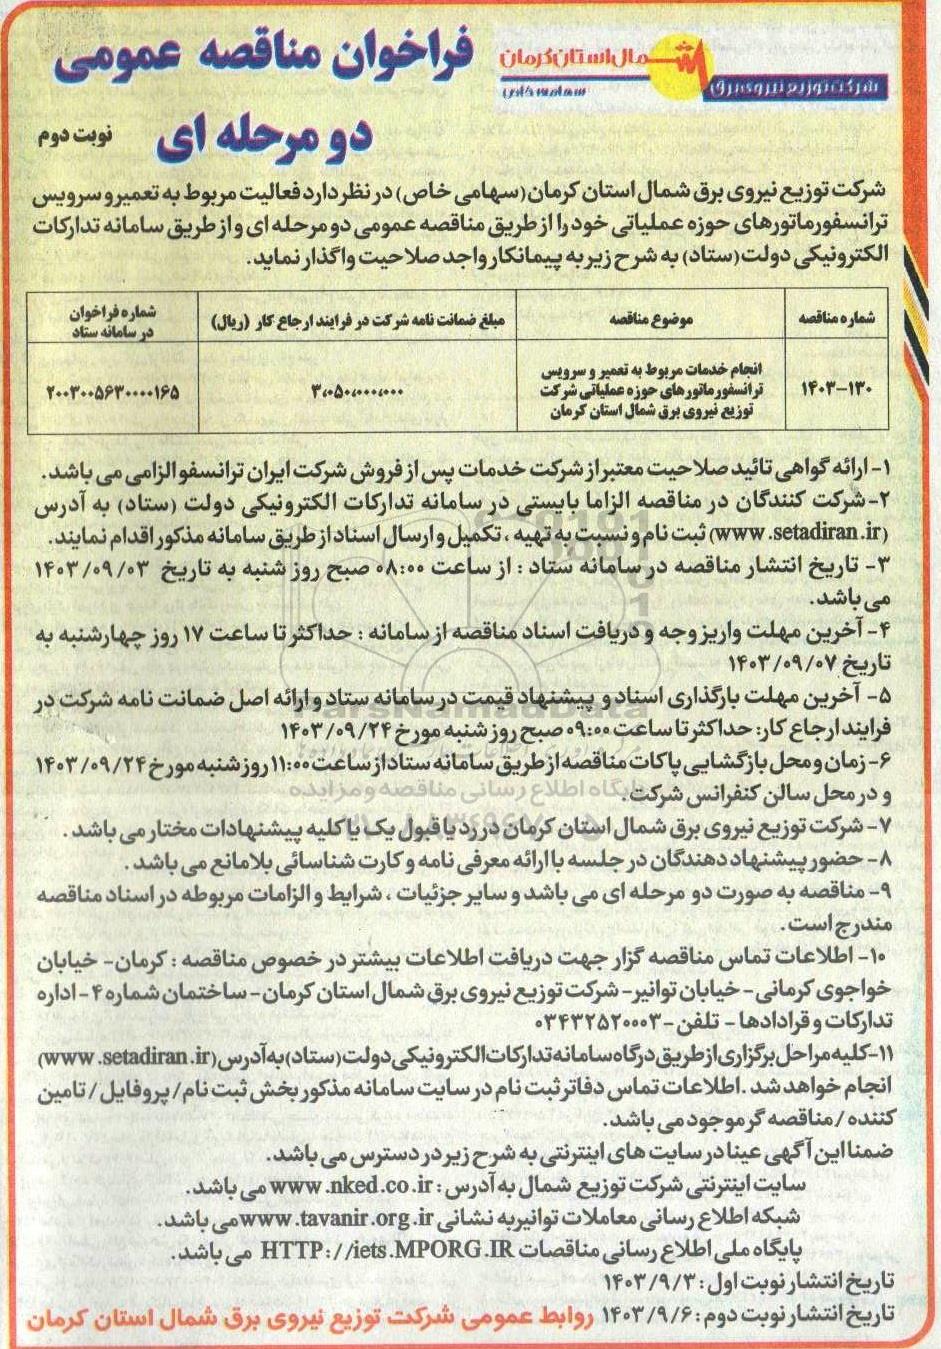 فراخوان مناقصه عمومی
شمال استان کرمان
شرکت توزیع نیروی برق
سهامی خاص
دو مرحله ای
نوبت دوم
شرکت توزیع نیروی برق شمال استان کرمان (سهامی خاص) در نظر دارد فعالیت مربوط به تعمیر و سرویس
ترانسفورماتورهای حوزه عملیاتی خود را از طریق مناقصه عمومی دو مرحله ای و از طریق سامانه تدارکات
الکترونیکی دولت (ستاد) به شرح زیر به پیمانکار واجد صلاحیت واگذار نماید.
شماره مناقصه
موضوع مناقصه
مبلغ ضمانت نامه شرکت در فرایند ارجاع کار (ریال)
شماره فراخوان
در سامانه ستاد
۱۴۰۳-۱۳۰
انجام خدمات مربوط به تعمیر و سرویس
ترانسفورماتورهای حوزه عملیاتی شرکت
توزیع نیروی برق شمال استان کرمان
۳،۰۵۰،۰۰۰،۰۰۰
۲۰۰۳۰۰۵۶۳۰۰۰۰۱۶۵
۱- ارائه گواهی تائید صلاحیت معتبر از شرکت خدمات پس از فروش شرکت ایران ترانسفو الزامی می باشد.
۲- شرکت کنندگان در مناقصه الزاما بایستی در سامانه تدارکات الکترونیکی دولت (ستاد) به آدرس
(www.setadiran.ir) ثبت نام و نسبت به تهیه، تکمیل و ارسال اسناد از طریق سامانه مذکور اقدام نمایند.
۳- تاریخ انتشار مناقصه در سامانه ستاد : از ساعت ۰۸:۰۰ صبح روز شنبه به تاریخ ۱۴۰۳/۰۹/۰۳
می باشد.
۴- آخرین مهلت واریز وجه و دریافت اسناد مناقصه از سامانه : حداکثر تا ساعت ۱۷ روز چهارشنبه به
تاریخ ۱۴۰۳/۰۹/۰۷
۵- آخرین مهلت بارگذاری اسناد و پیشنهاد قیمت در سامانه ستاد و ارائه اصل ضمانت نامه شرکت در
فرایند ارجاع کار: حداکثر تا ساعت ۰۹:۰۰ صبح روز شنبه مورخ ۱۴۰۳/۰۹/۲۴
۶- زمان و محل بازگشایی پاکات مناقصه از طریق سامانه ستاد از ساعت ۱۱:۰۰ روز شنبه مورخ ۱۴۰۳/۰۹/۲۴
و در محل سالن کنفرانس شرکت.
۷- شرکت توزیع نیروی برق شمال استان کرمان در رد یا قبول یک یا کلیه پیشنهادات مختار می باشد.
۸- حضور پیشنهاد دهندگان در جلسه با ارائه معرفی نامه و کارت شناسائی بلامانع می باشد.
۹- مناقصه به صورت دو مرحله ای می باشد و سایر جزئیات، شرایط و الزامات مربوطه در اسناد مناقصه
مندرج است.
۱۰- اطلاعات تماس مناقصه گزار جهت دریافت اطلاعات بیشتر در خصوص مناقصه : کرمان- خیابان
خواجوی کرمانی- خیابان توانیر- شرکت توزیع نیروی برق شمال استان کرمان- ساختمان شماره ۴- اداره
تدارکات و قرادادها - تلفن - ۰۳۴۳۲۵۲۰۰۰۳
۱۱- کلیه مراحل برگزاری از طریق درگاه سامانه تدارکات الکترونیکی دولت (ستاد) به آدرس (www.setadiran.ir)
انجام خواهد شد. اطلاعات تماس دفاتر ثبت نام در سایت سامانه مذکور بخش ثبت نام / پروفایل / تامین
کننده / مناقصه گر موجود می باشد.
ضمنا این آگهی عینا در سایت های اینترنتی به شرح زیر در دسترس می باشد.
سایت اینترنتی شرکت توزیع شمال به آدرس : www.nked.co.ir می باشد.
شبکه اطلاع رسانی معاملات توانیر به نشانی www.tavanir.org.ir می باشد.
پایگاه ملی اطلاع رسانی مناقصات HTTP://iets.MPORG.IR می باشد.
تاریخ انتشار نوبت اول : ۱۴۰۳/۹/۳
تاریخ انتشار نوبت دوم : ۱۴۰۳/۹/۶
روابط عمومی شرکت توزیع نیروی برق شمال استان کرمان
ParsNamadData
پایگاه اطلاع رسانی مناقصه و مزایده